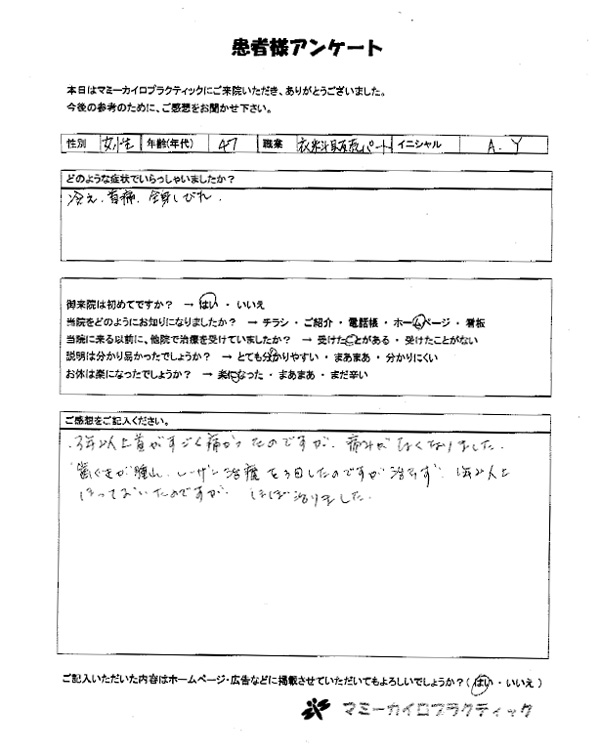 患者様アンケート
本日はマミーカイロプラクティックにご来院いただき、ありがとうございました。
今後の参考のために、ご感想をお聞かせ下さい。
性別 女性 年齢(年代) 47 職業 衣料販売パート イニシャル A.Y
どのような症状でいらっしゃいましたか?
冷え、首痛、全身しびれ、
御来院は初めてですか? → はい ・ いいえ
当院をどのようにお知りになりましたか? → チラシ ・ ご紹介 ・ 電話帳 ・ ホームページ ・ 看板
当院に来る以前に、他院で治療を受けていましたか? → 受けたことがある ・ 受けたことがない
説明は分かり易かったでしょうか? → とても分かりやすい ・ まあまあ ・ 分かりにくい
お体は楽になったでしょうか? → 楽になった ・ まあまあ ・ まだ辛い
ご感想をご記入ください。
年以上首がすごく痛かったのですが、痛みがなくなりました。
歯ぐきが腫れ、レーザー治療を3回したのですが治らず、1年以上
ほっておいたのですが、ほぼ治りました。
ご記入いただいた内容はホームページ・広告などに掲載させていただいてもよろしいでしょうか?( はい ・ いいえ )
マミーカイロプラクティック